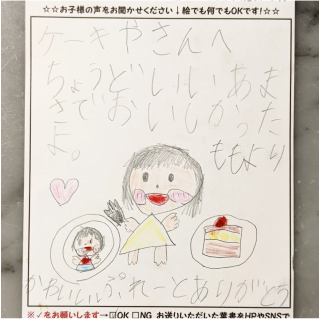 ☆☆お子様の声をお聞かせください↓絵でも何でもOKです!☆☆
ケーキやさんへ
ちょうどいいあま
さでおいしかった
よ。
ももより
かわいいぷれーとありがとう
※✓をお願いします→☑OK □NG お送りいただいた葉書をHPやSNSで